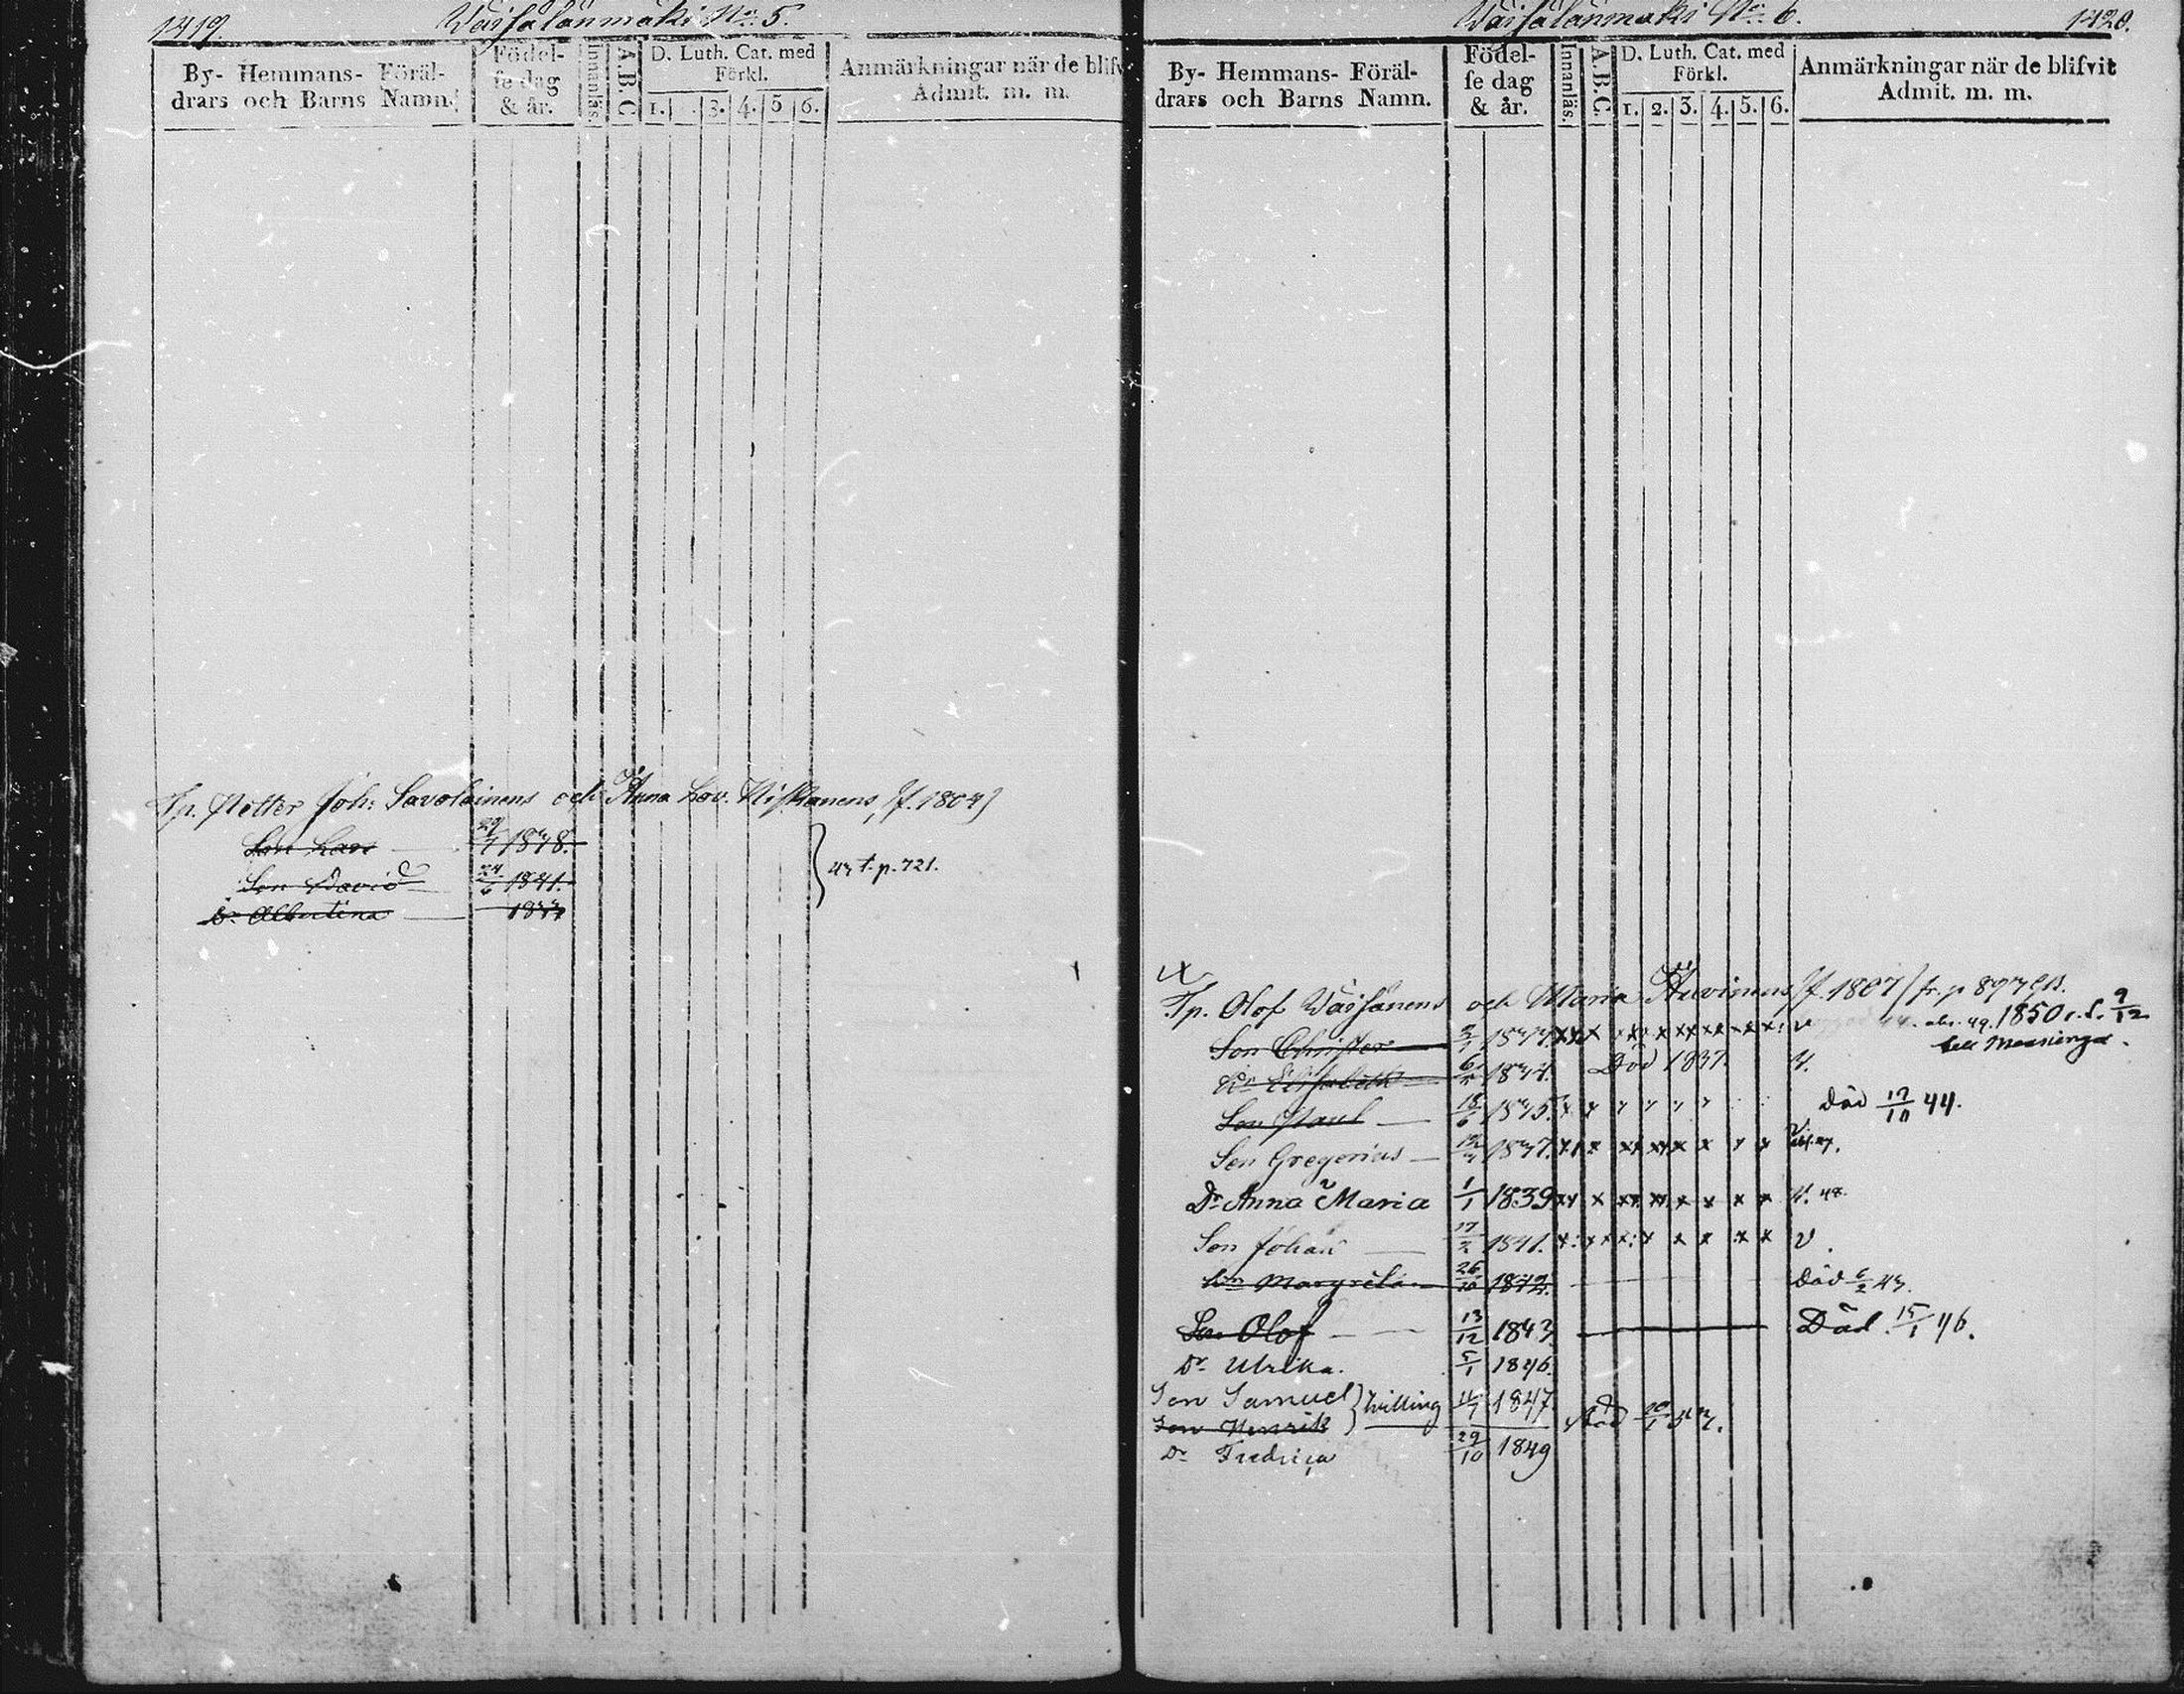 1419. Waisälänmäki No. 5.
By- Hemmans- Föräl-
drars och Barns Namn.
Födel-
se dag
& år.
Innanläs.
A.B.C
D. Luth. Cat. med
Förkl.
1. 3. 4. 5 6.
Anmärkningar när de blifv
Admit. m. m.
Tp. Petter Joh: Savolainens och Anna Lov. Niskanens, /f. 1804)
Son Lars 29/7 1838.
Son David 24/6 1841.
Dr Albertina
43 t. p. 721.
Waisälänmäki No. 6. 1420.
By- Hemmans- Föräl-
drars och Barns Namn.
Födel-
se dag
& år.
Innanläs.
A.B.C.
D. Luth. Cat. med
Förkl.
1. 2. 3. 4. 5. 6.
Anmärkningar när de blifvit
Admit. m. m.
Tp. Olof Waisänens och Maria /f. 1807/ fr. p 897
Son Christer x x x x x x x x v 1850 9/12
Dr Elisabeth Död 1837.
Son Paul 18/6 1835. Död 17/10 44.
Son Gregorius 1837. x x x x x x x x
Dr Anna Maria 1/1 1839 x x x x x x x x 48.
Son Johan 17/2 1841. x x x x x x x v.
Dr Margreta 26/10 1842. Död 6/2 43.
Son Olof 13/12 1843 Död 15/1 46.
Dr Ulrika. 5/1 1846.
Son Samuel } tvilling 1847.
Son Henrik död
Dr Fredrica 29/10 1849